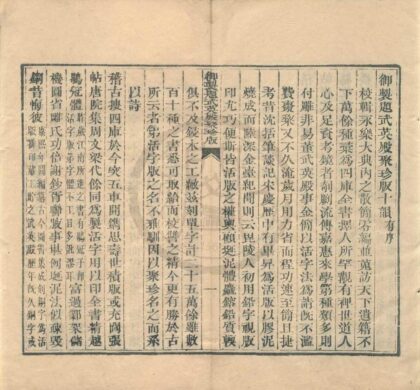 御製題武英殿聚珍版十韻有序
校輯永樂大典內之散簡零編並蒐訪天下遺籍不
下萬餘種彙為四庫全書擇人所罕覯有裨世道人
心及足資考鏡者剞劂流傳嘉惠來學第種類多則
付雕非易董武英殿事金簡以活字法為請既不濫
費棗梨又不久淹歲月用力省而程功速至簡且捷
考昔沈括筆談記宋慶歷中有畢昇為活版以膠泥
燒成而陸深金臺紀聞則云毘陵人初用鉛字視版
印尤巧便斯皆活版之權輿顧埏泥體麤鎔鉛質輭
御製題武英殿聚珍版
一
俱不及鋟木之工緻茲刻單字計二十五萬餘雖數
百十種之書悉可取給而校讐之精今更有勝於古
所云者第活字版之名不雅馴因以聚珍名之而系
以詩
稽古搜四庫於今突五車開鐫思壽世積版或充閭張
帖唐院集周文梁代餘同為製活字用以印全書精越
鶡冠體 富過鄴架儲
機圖省雕氏功倍謝鈔胥聯腋事堪例埏泥法似疏毀
銅昔悔彼